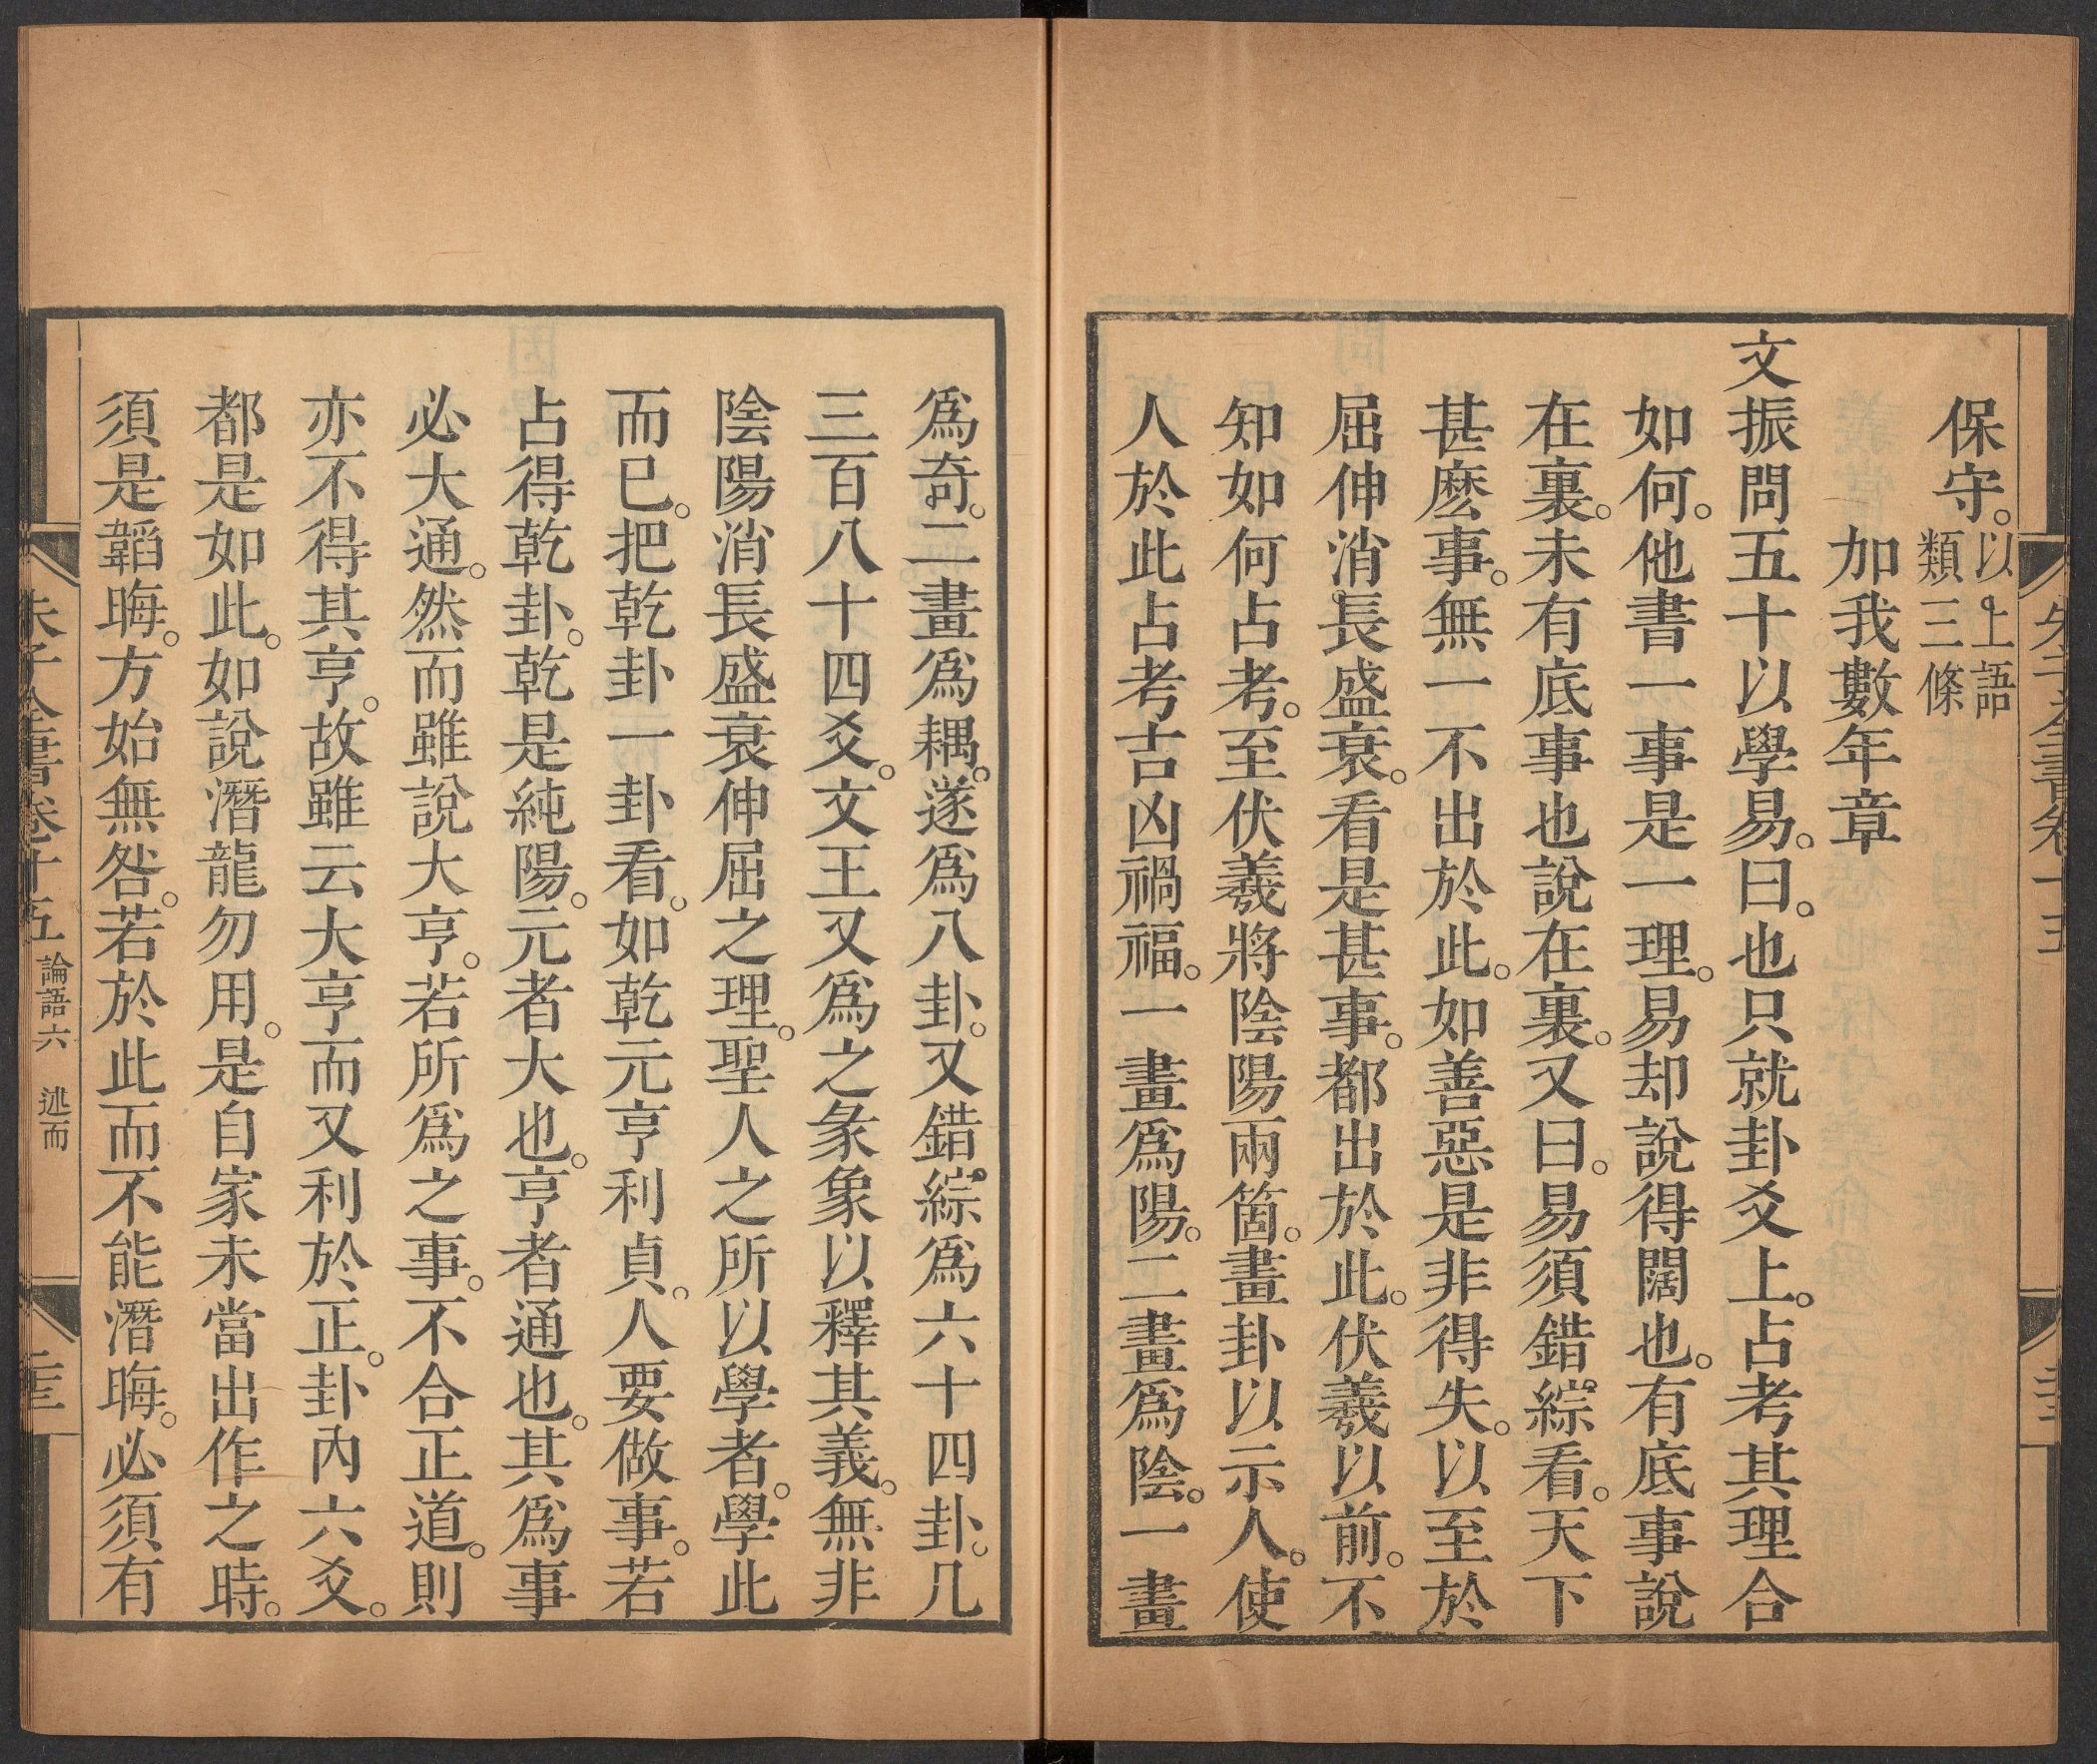 保守。以上語
類三條
加我數年章
文振問五十以學易。曰。也只就卦爻上。占考其理合
如何。他書一事是一理。易却說得闊也。有底事說
在裏。未有底事也說在裏。又曰。易須錯綜看。天下
甚麽事。無一不出於此。如善惡是非得失。以至於
屈伸消長盛衰。看是甚事。都出於此。伏羲以前。不
知如何占考。至伏羲將陰陽兩箇。畫卦以示人。使
人於此占考吉凶禍福。一畫爲陽。二畫爲陰。一畫
爲奇。二畫爲耦。遂爲八卦。又錯綜爲六十四卦。凡
三百八十四爻。文王又爲之彖象以釋其義。無非
陰陽消長盛衰伸屈之理。聖人之所以學者。學此
而已。把乾卦一卦看。如乾元亨利貞。人要做事。若
占得乾卦。乾是純陽。元者大也。亨者通也。其爲事
必大通。然而雖說大亨。若所爲之事。不合正道。則
亦不得其亨。故雖云大亨而又利於正。卦內六爻。
都是如此。如說潛龍勿用。是自家未當出作之時。
須是韜晦。方始無咎。若於此而不能潛晦。必須有
朱子全書卷十五 論語六 述而